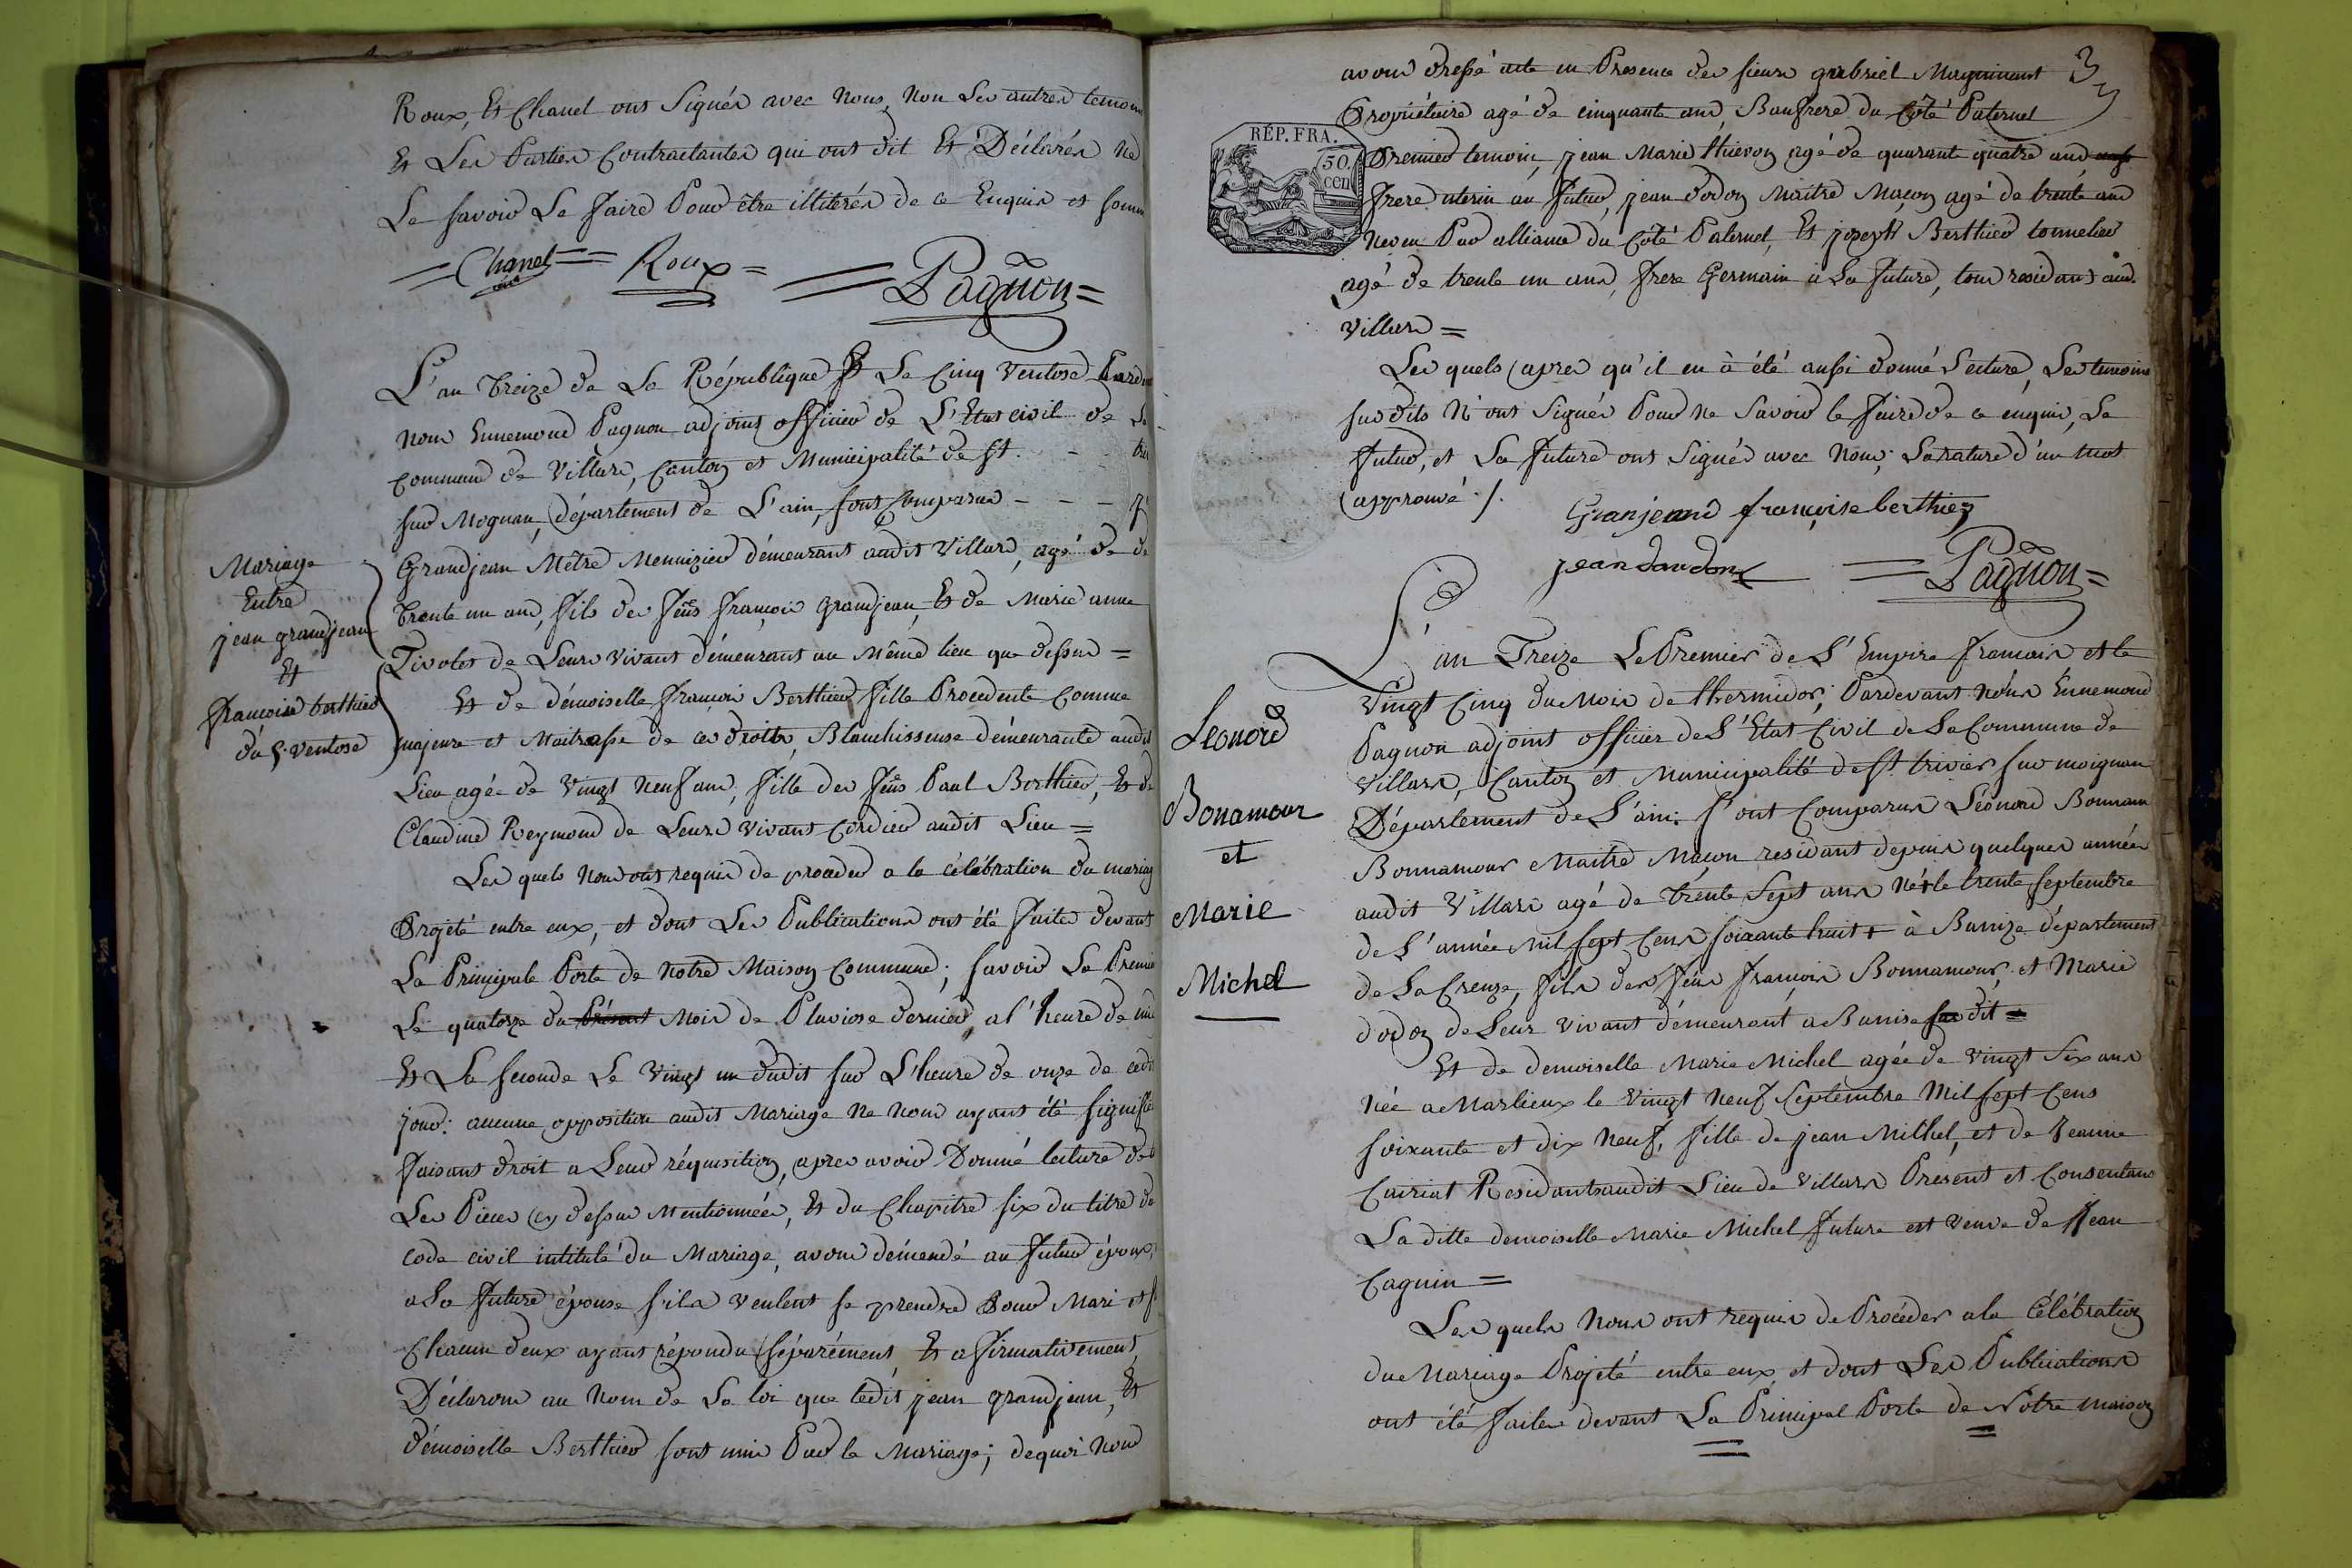 Roux, Et Chanel ont Signés avec Nous, Non Les autres temoin
Et Les Parties Contractantes qui ont dit Et Déclarés Ne
Le savoir Le faire Pour être illiterés de ce Enquis et somm
Chanel Roux Pagnon
L'an treize de La République Le Cinq Ventose Pard
nous Ennemond Pagnon adjoint officier de L'Etat civil de La
commune de Villars, Canton et Municipalité de St. - - tri
sur Mognan, Département de L'ain, sont Comparus - - -
Grandjean Mêtre Menuizier démeurant audit Villars, agé de de
trente un ans, fils des feûs françois grandjean, Et de Marie anne
Tivolet de Leurs vivant démeurant au Même lieu que dessus =
Et de démoiselle françoise Berthier fille Procedente Comme
majeure et Maitresse de ces droits, Blanchisseuse démeurante audit
Lieu agée de Vingt Neuf ans, fille des feûs Paul Berthier, Et de
Claudine Reymond de Leurs vivant Cordier audit Lieu =
Les quels Nous ont requis de proceder a la célébration du mariag
Projeté entre eux, et dont Les Publications ont été faites devant
La Principale Porte de Notre Maison Commune; savoir La Premie
Le quatorze du Présent Mois de Pluviose dernier, a l'heure de mi
Et La seconde Le Vingt un dudit sur L'heure de onze de
jour: aucune opposition audit Mariage Ne Nous ayant été signifié
faisant droit a Leur réquisition, apres avoir Donné lecture de
Les Pieces cy dessus Mentionnées, Et du Chapitre six du titre du
code civil intitulé du Mariage, avons démandé au futur époux,
a La future épouse s'ils veulent se prendre Pour Mari et f
Chacun deux ayant répondu séparéement, Et afirmativement,
Déclarons au Nom de La loi que ledit jean grandjean, Et
démoiselle Berthier sont unis Par le Mariage; dequoi Nous
Mariage
Entre
jean grandjean
Et
françoise berthier
du 5. Ventose
3
avons dressé acte en Presence des sieurs gabriel
Propriétaire agé de cinquante ans, Baufrere du Coté Paternel
RÉP. FRA.
50
cen
Premier temoin, jean Marie thievon agé de quarante quatre ans
frere uterin au futur, jean dodon Maitre Maçon agé de trente ans
Neveu Par alliance du Coté Paternel, Et joseph Berthier tonnelier
agé de trente un ans, frere Germain à La future, tous residant aud.
Villars =
Les quels apres qu'il en à été aussi donné Lecture, Les temoins
sus dits N'ont Signés Pour ne Savoir le faire de ce enquis, Le
futur, et La future ont Signés avec Nous; La rature d'un mot
approuvé ./.
Granjeand françoise berthier
jean daudon Pagnon
L'an Treize Le Premier de L'Empire francais et le
Vingt Cinq du Mois de thermidor, Pardevant Nous Ennemond
Pagnon adjoint officier de L'Etat Civil de La Commune de
Villars, Canton et Municipalité de St. trivier sur moignan
Département de L'ain: sont Comparus Léonord Bonnam
Bonnamour Maitre Maçon residant depuis quelques années
audit Villars agé de trente Sept ans Né le trente septembre
de L'année Mil sept Cens soixante huit à Banize département
de La Creuze, fils des feûs françois Bonnamour, et Marie
dodon de Leur Vivant démeurant a Banise sus dit =
Et de demoiselle Marie Michel agée de Vingt Six ans
Née a Marlieux le Vingt Neuf Septembre Mil sept Cens
soixante et dix Neuf, fille de jean Milhel, et de Jeanne
Cauriat Residants audit Lieu de Villars Present et Consentans
La ditte demoiselle Marie Michel future est Veuve de Jean
Caguin =
Les quels Nous ont requis de Procéder a la Célébration
du Mariage Projeté entre eux, et dont Les Publications
ont été faites devant La Principal Porte de Notre maison
Léonord
Bonamour
et
Marie
Michel